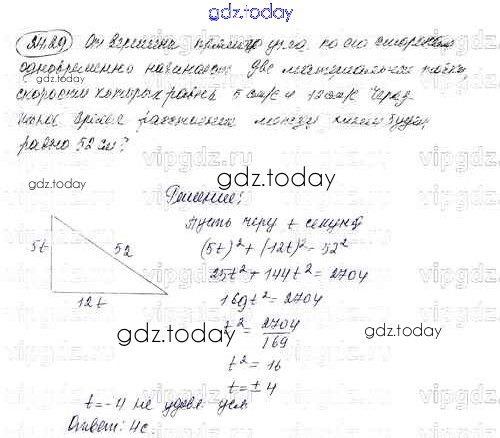 gdz.today
24.29 От вершины прямого угла по его сторонам
одновременно начинают две материальные точки,
скорости которых равны 5 см/с и 12 см/с. Через
какое время расстояние между ними будет
равно 52 см?
gdz.today
gdz.today
Решение:
Пусть через t секунд
(5t)² + (12t)² = 52²
25t² + 144t² = 2704
169t² = 2704
t² = 2704/169
t² = 16
t = ± 4
5t
52
12t
gdz.today
gdz.today
t = -4 не удовл. усл.
Ответ: 4с.
gdz.today
vipgdz.ru